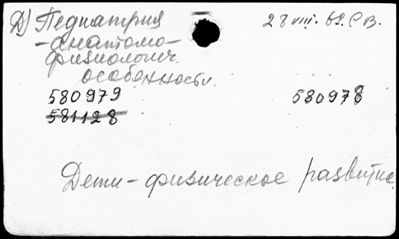 Д) Педиатрия 28 VIII. 62. С В.
-анатомо-
физиологич.
особенности.
580979 580978
581128
Дети-физическое развитие